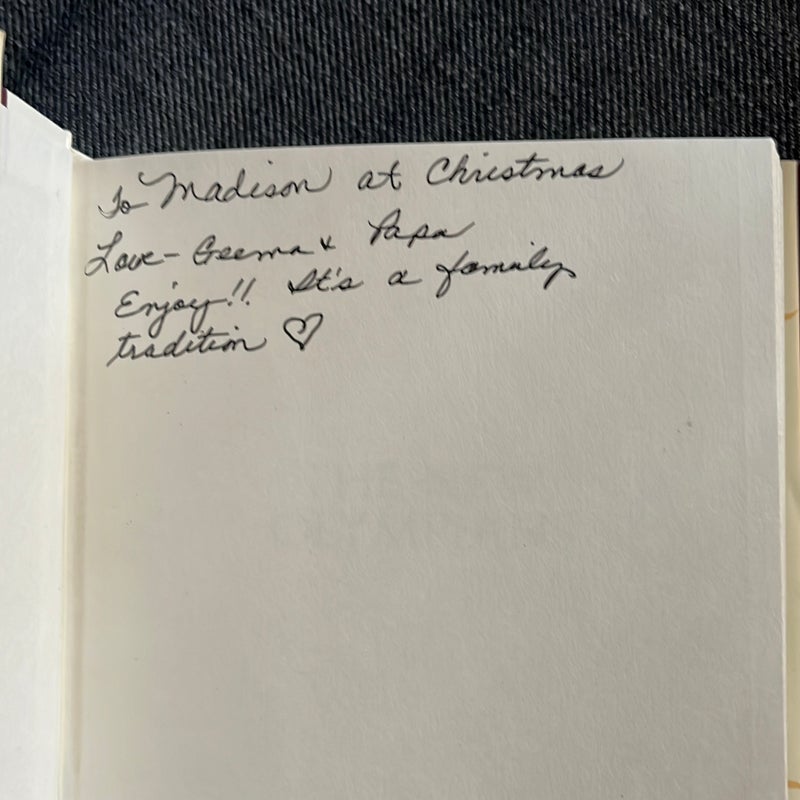 To Madison at Christmas
Love- Geema & Papa
Enjoy!! It's a family
tradition ♡